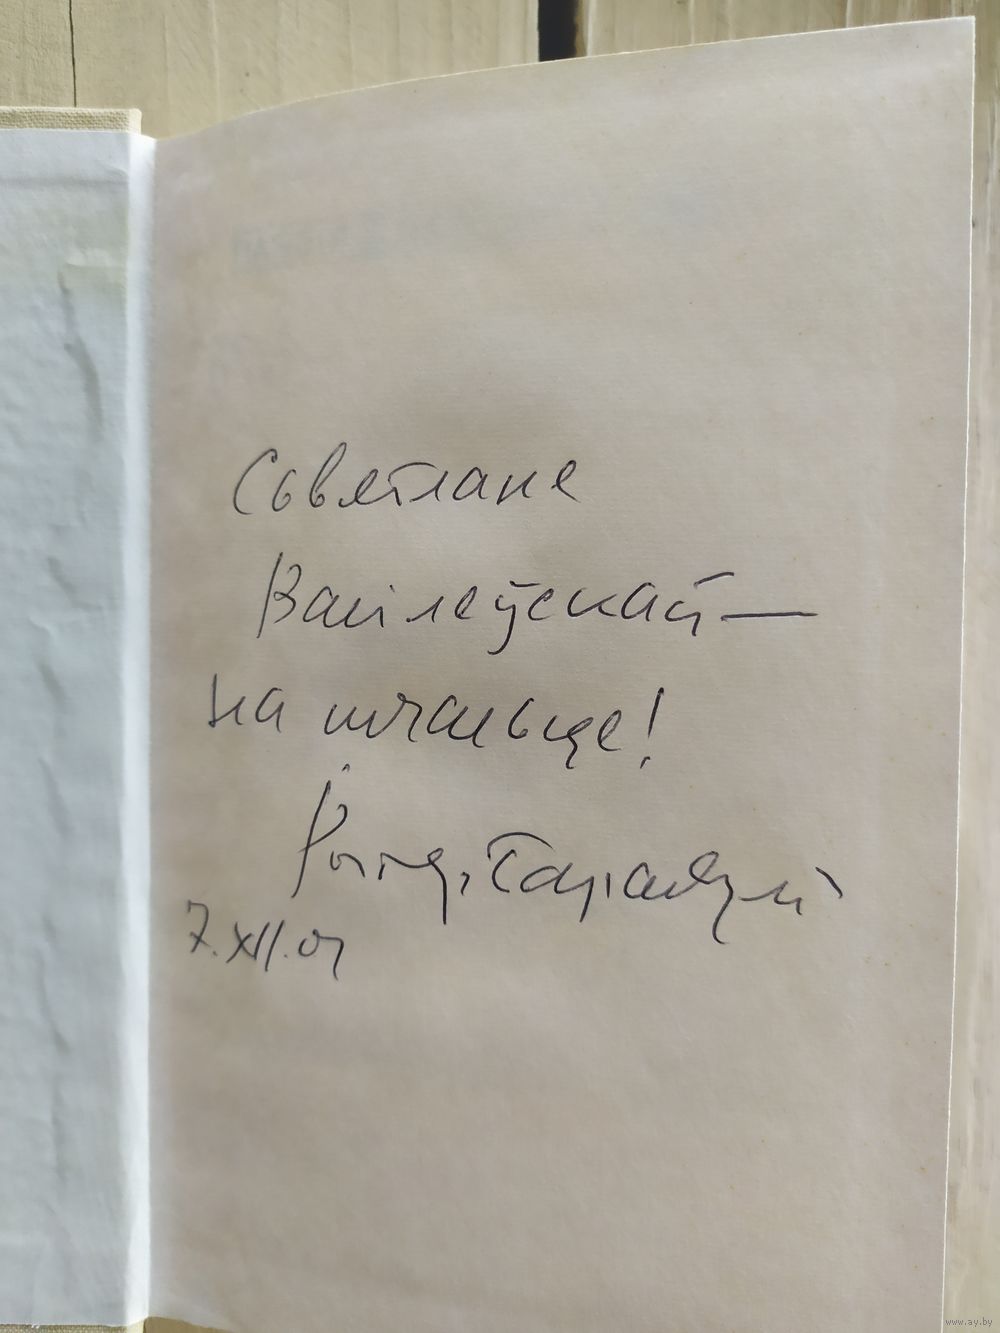 Сьвятлане
Вайлеўскай —
на шчасьце!
Рыгор Барадулін
7.XII.01
www.ay.by